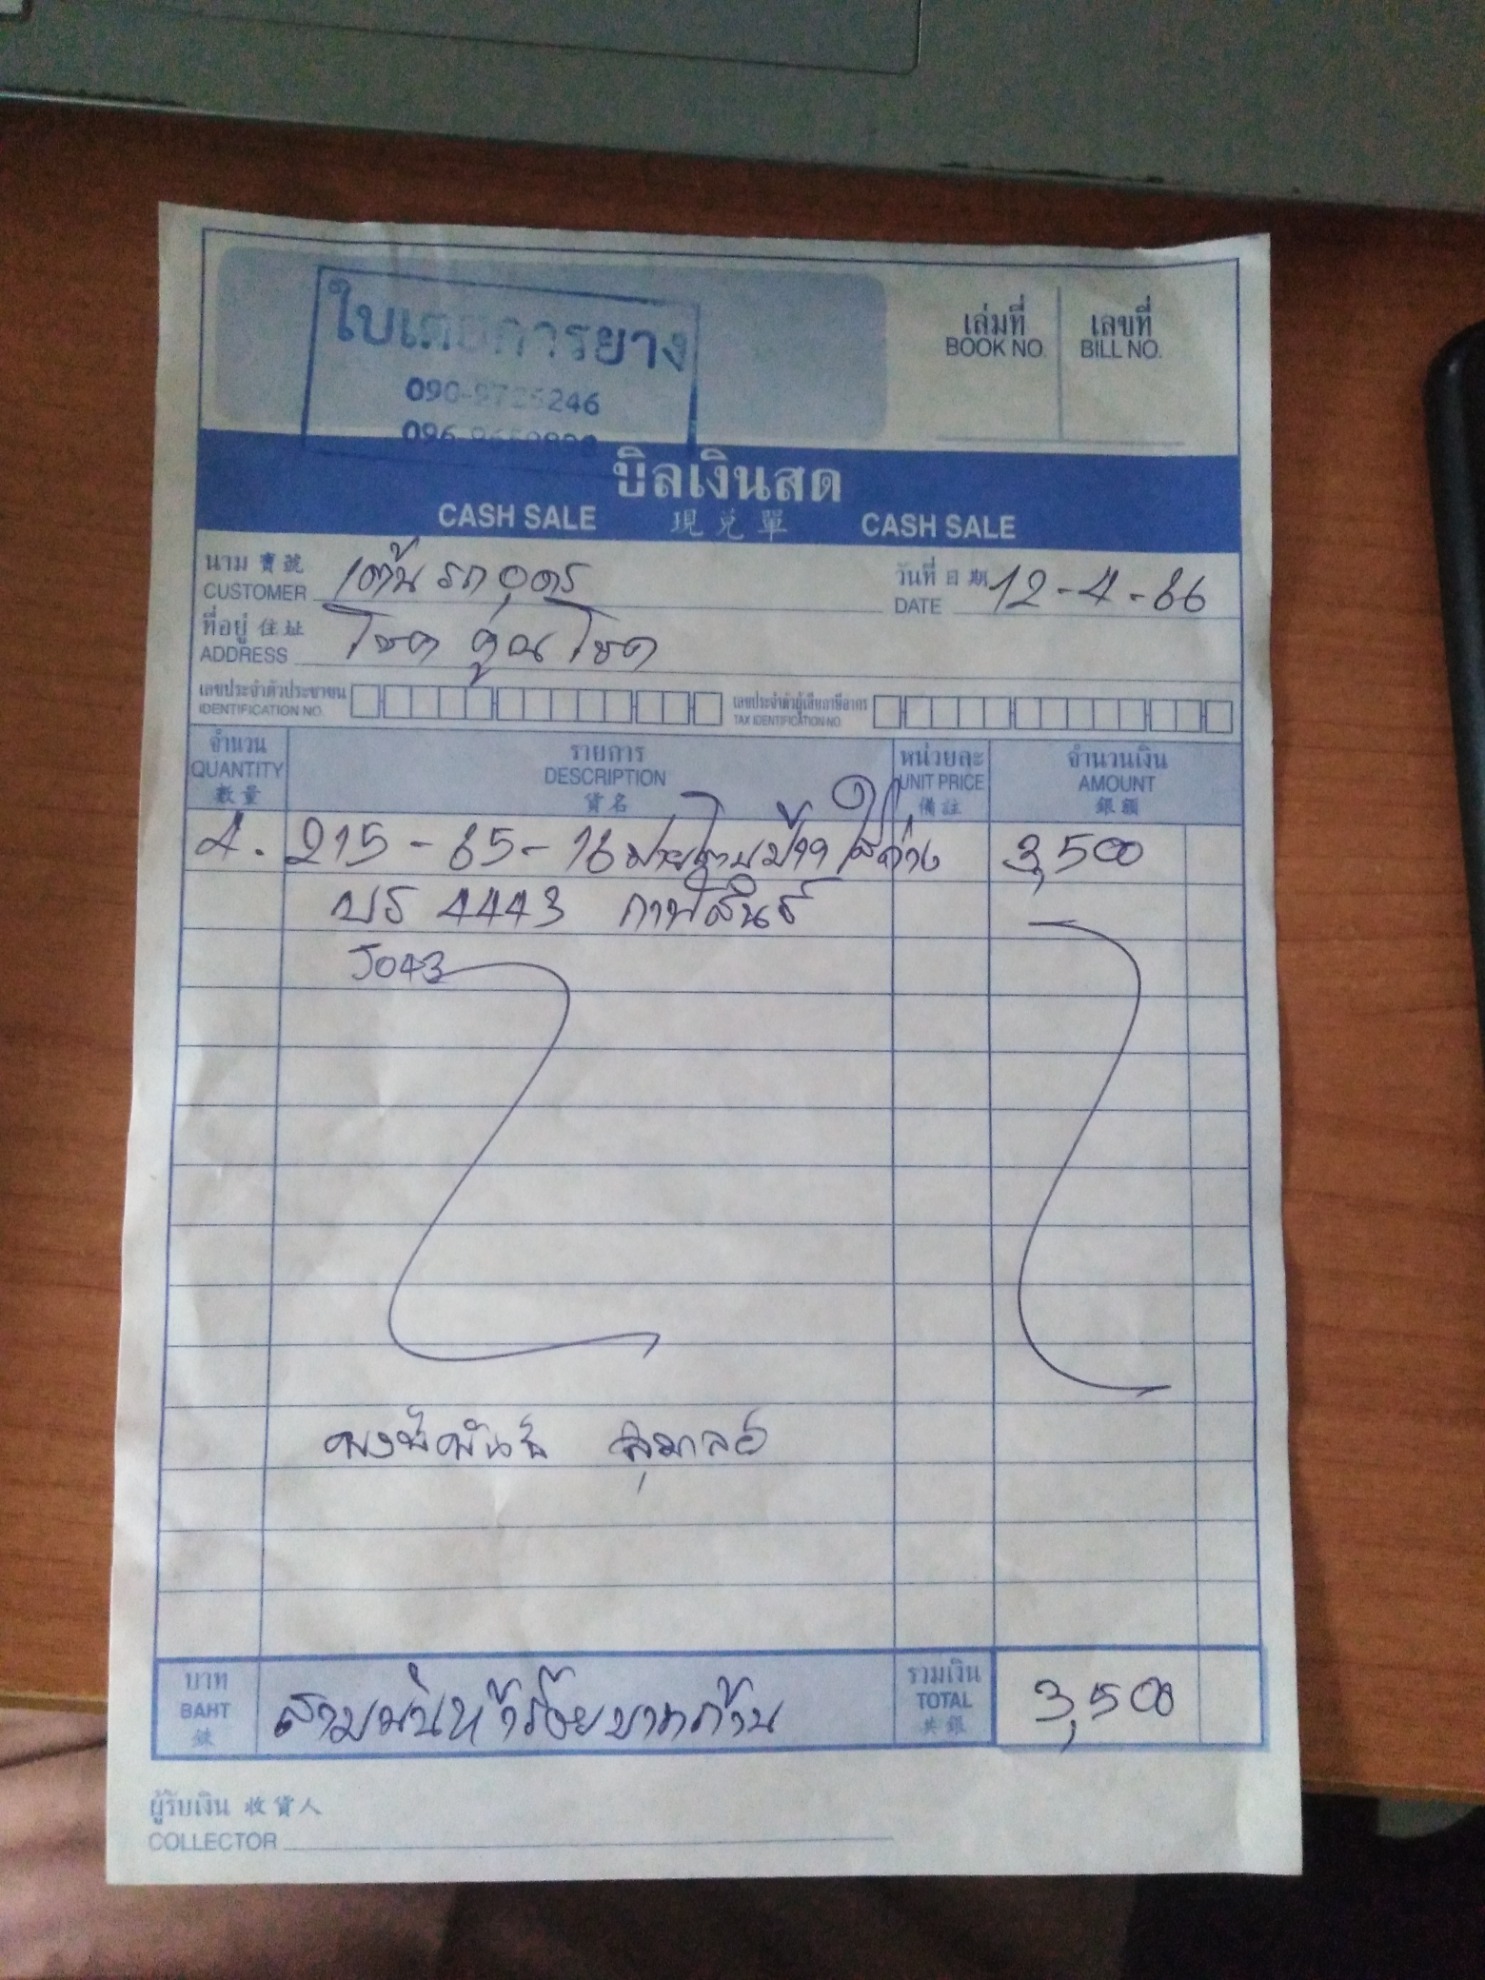 ใบเตยการยาง
090-9725246
เล่มที่ เลขที่
BOOK NO. BILL NO.
บิลเงินสด
CASH SALE 現兌單 CASH SALE
นาม 寶號 CUSTOMER เต้น รถ อุดร
วันที่ 日期 DATE 12-4-66
ที่อยู่ 住址 ADDRESS โชค คูณ โชค
เลขประจำตัวประชาชน IDENTIFICATION NO.
เลขประจำตัวผู้เสียภาษีอากร TAX IDENTIFICATION NO.
จำนวน รายการ หน่วยละ จำนวนเงิน
QUANTITY DESCRIPTION UNIT PRICE AMOUNT
數量 貨名 備註 銀額
4. 215-65-16 3,500
บร 4443 กาฬสินธุ์
J043
บาท BAHT
รวมเงิน TOTAL 共銀 3,500
ผู้รับเงิน 收貨人
COLLECTOR